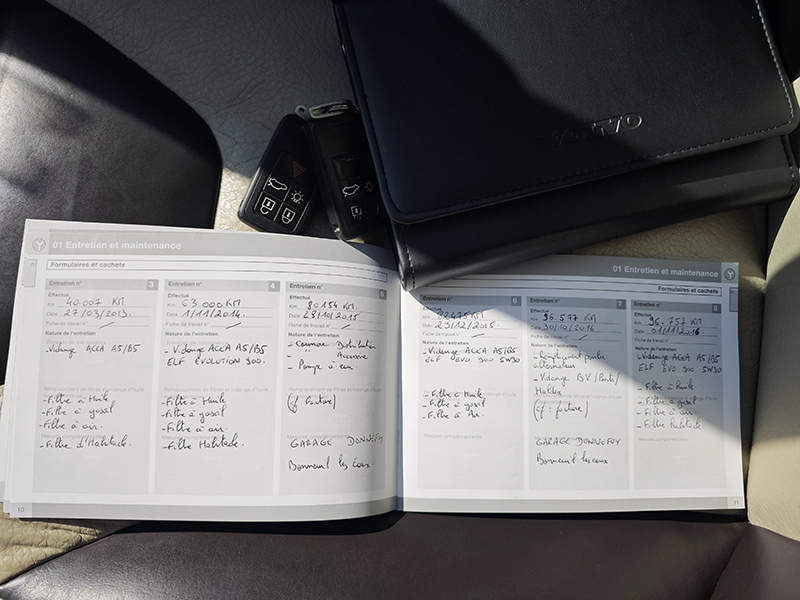 VOLVO
01 Entretien et maintenance
Formulaires et cachets
Entretien n° 3
Effectué
Km 40.007 KM
Date 27/03/2013.
Fiche de travail n°
Nature de l'entretien
-Vidange ACEA A5/B5
-Filtre à Huile
-Filtre à gasoil
-Filtre à air.
-Filtre d'Habitacle.
Entretien n° 4
Effectué
Km 63.000 KM
Date 1/11/2014.
Fiche de travail n°
Nature de l'entretien
-Vidange ACEA A5/B5
ELF EVOLUTION 900.
-Filtre à Huile
-Filtre à gasoil
-Filtre à air
-Filtre Habitacle.
Entretien n° 5
Effectué
Km 80154 KM
Date 28/10/2015
Fiche de travail n°
Nature de l'entretien
-Courroie Distribution
- " Accessoire
-Pompe à eau
(cf: Facture)
GARAGE DONNEFOY
Bonneuil les eaux.
10
01 Entretien et maintenance
Formulaires et cachets
Entretien n° 6
Effectué
Date 29/12/2015.
Fiche de travail n°
Nature de l'entretien
-Vidange ACEA A5/B5
ELF EVO 900 5W30
-Filtre à Huile
-Filtre à gasoil
-Filtre à Air.
Entretien n° 7
Effectué
Km 96.577 KM
Date 30/10/2016
Fiche de travail n°
Nature de l'entretien
-Remplacement poulie
alternateur
-Vidange BV/Ponts/
Haldex
(cf: facture)
GARAGE DONNEFOY
Bonneuil les eaux.
Entretien n° 8
Effectué
Km 96.757 KM
Date 01/11/2016
Fiche de travail n°
Nature de l'entretien
-Vidange ACEA A5/B5
ELF EVO 900 5W30
-Filtre à Huile
-Filtre à gasoil
-Filtre à air.
-Filtre Habitacle
11